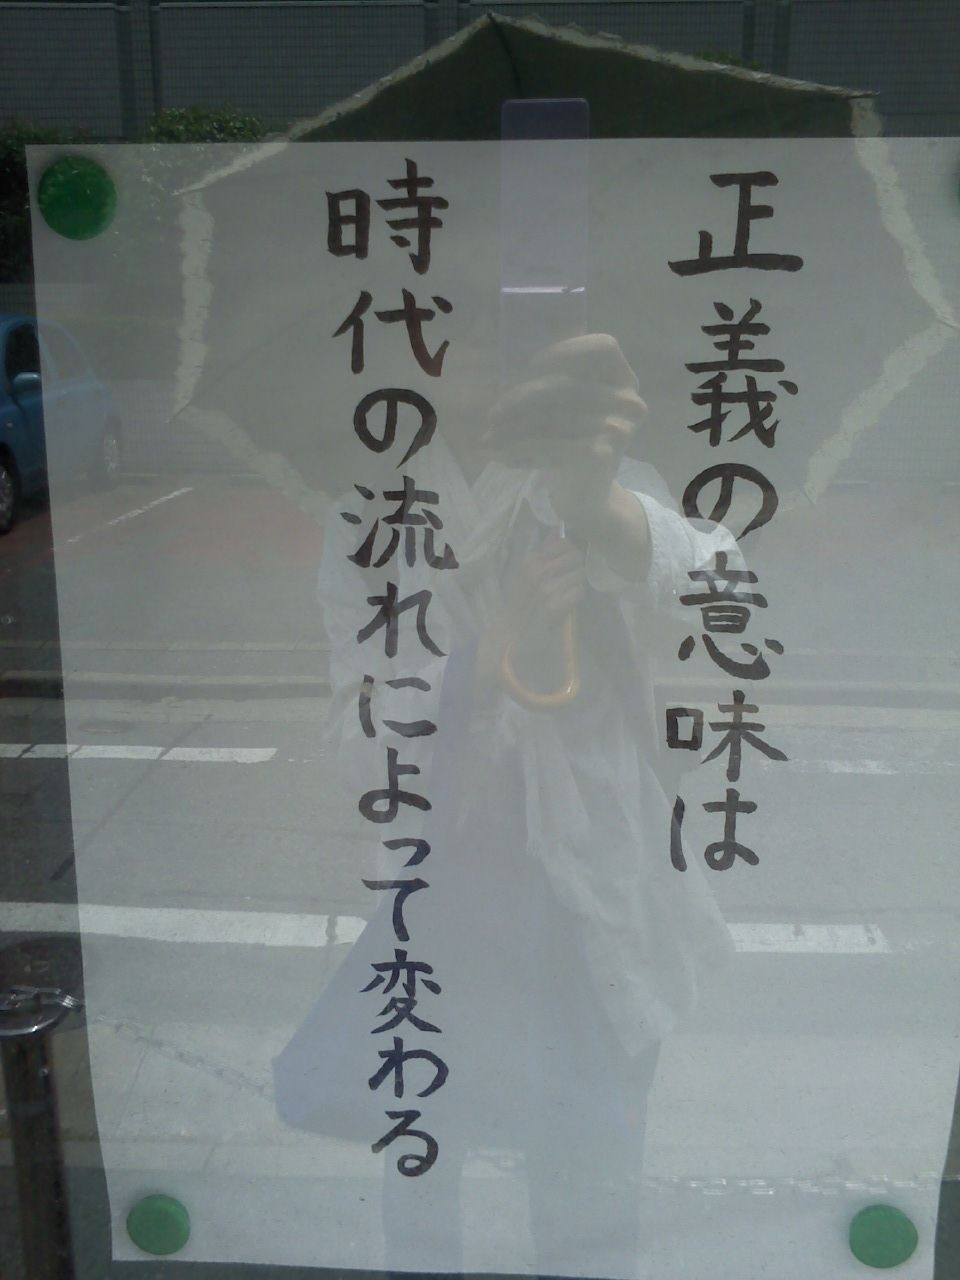 正義の意味は
時代の流れによって変わる